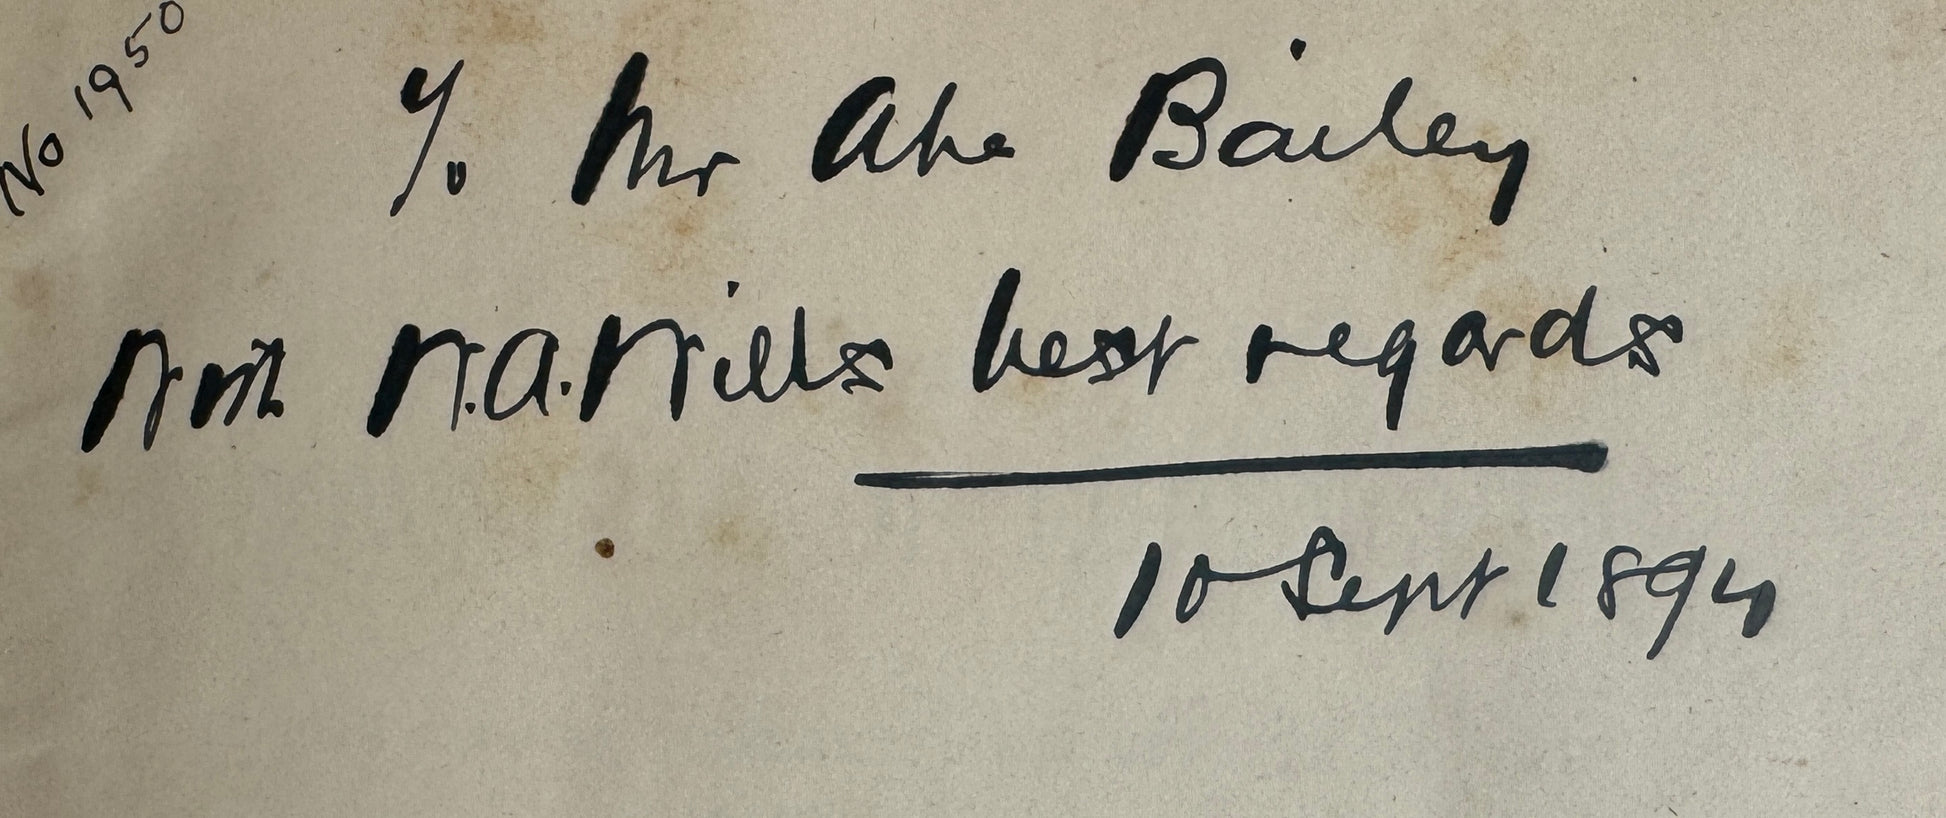 No 1950
To Mr Abe Bailey
With W.A. Wills best regards
10 Sept 1894